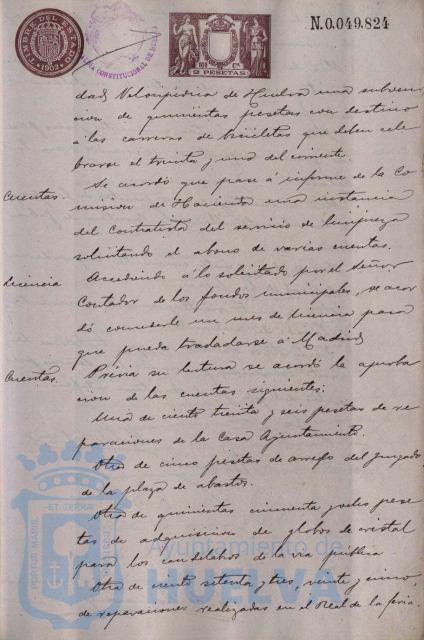 N.0.049.824
TIMBRE DEL ESTADO
1902
CONSTITUCIONAL DE
2 PESETAS
dad Velocipédica de Huelva una subven
cion de quinientas pesetas con destino
á las carreras de bicicletas que deben cele
brarse el treinta y uno del corriente.
Cuentas.
Se acordó que pase á informe de la Co
mision de Hacienda una instancia
del Contratista del servicio de limpieza
solicitando el abono de varias cuentas.
Licencia
Accediendo á lo solicitado por el Señor
Contador de los fondos municipales, se acor
dó concederle un mes de licencia para
que pueda trasladarse á Madrid
Cuentas.
Prévia su lectura se acordó la aproba
cion de las cuentas siguientes:
Una de ciento treinta y seis pesetas de re
paraciones de la Casa Ayuntamiento.
Otra de cinco pesetas de arreglo del Juzgado
de la plaza de abastos.
Otra de quinientas cincuenta y pese
tas de adquisicion de globos de cristal
para los candelabros de la via publica
Otra de ciento setenta y tres, veinte y cinco,
de reparaciones realizadas en el Real de la feria.
PORTUS MARIS
ET TERRAE
CUSTODIA
Ayuntamiento de
HUELVA